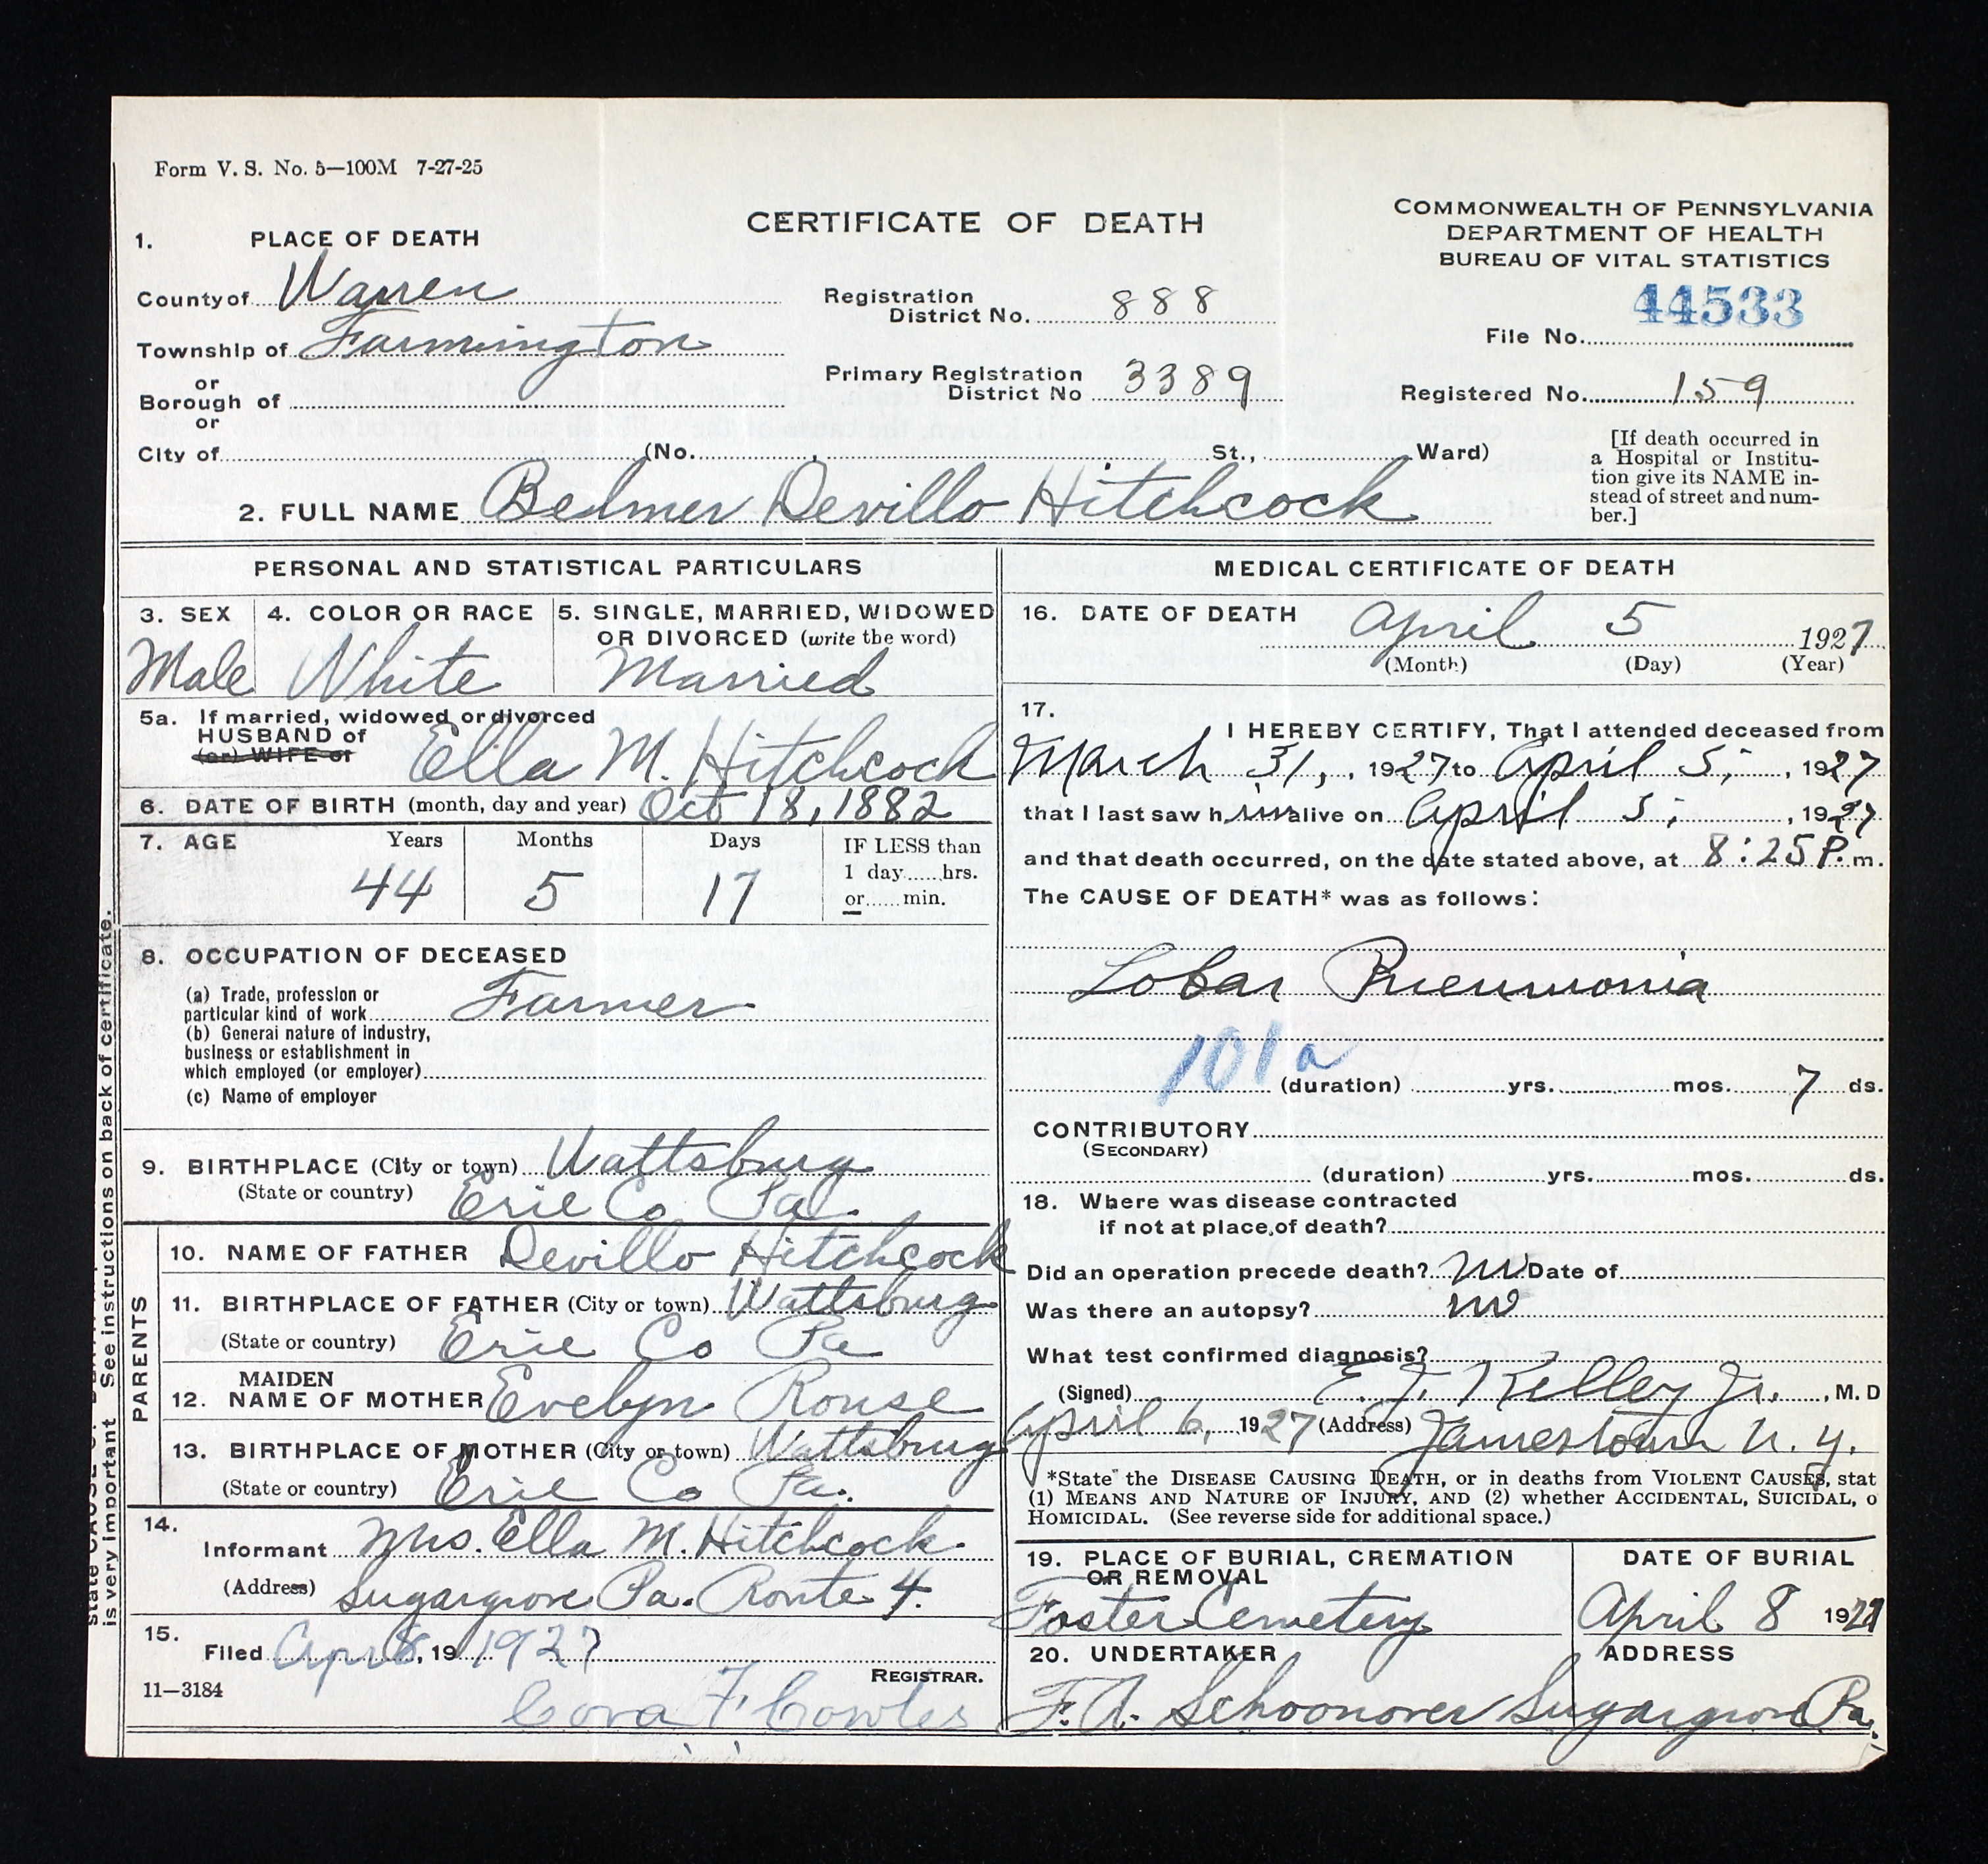 Form V. S. No. 5—100M 7-27-25
CERTIFICATE OF DEATH
COMMONWEALTH OF PENNSYLVANIA
DEPARTMENT OF HEALTH
BUREAU OF VITAL STATISTICS
1. PLACE OF DEATH
County of Warren
Township of Farmington
or
Borough of
or
City of (No. , St., Ward)
Registration
District No. 888
Primary Registration
District No 3389
44533
File No.
Registered No. 159
[If death occurred in
a Hospital or Institu-
tion give its NAME in-
stead of street and num-
ber.]
2. FULL NAME Belmer Devillo Hitchcock
PERSONAL AND STATISTICAL PARTICULARS
3. SEX 4. COLOR OR RACE 5. SINGLE, MARRIED, WIDOWED
OR DIVORCED (write the word)
Male White Married
5a. If married, widowed or divorced
HUSBAND of
(or) WIFE of
Ella M. Hitchcock
6. DATE OF BIRTH (month, day and year) Oct 18, 1882
7. AGE Years Months Days IF LESS than
1 day hrs.
or min.
44 5 17
8. OCCUPATION OF DECEASED
(a) Trade, profession or
particular kind of work Farmer
(b) General nature of industry,
business or establishment in
which employed (or employer)
(c) Name of employer
9. BIRTHPLACE (City or town) Wattsburg
(State or country) Erie Co Pa.
PARENTS
10. NAME OF FATHER Devillo Hitchcock
11. BIRTHPLACE OF FATHER (City or town) Wattsburg
(State or country) Erie Co Pa
MAIDEN
12. NAME OF MOTHER Evelyn Rouse
13. BIRTHPLACE OF MOTHER (City or town) Wattsburg
(State or country) Erie Co Pa.
14.
Informant Mrs. Ella M. Hitchcock
(Address) Sugargrove Pa. Route 4.
15.
Filed Apr 8, 19 1927
REGISTRAR.
11—3184
Cora F Cowles
MEDICAL CERTIFICATE OF DEATH
16. DATE OF DEATH April 5 1927
(Month) (Day) (Year)
17.
I HEREBY CERTIFY, That I attended deceased from
March 31, , 1927 to April 5, , 1927
that I last saw h im alive on April 5, , 1927
and that death occurred, on the date stated above, at 8:25 P. m.
The CAUSE OF DEATH* was as follows:
Lobar Pneumonia
101a
(duration) yrs. mos. 7 ds.
CONTRIBUTORY
(SECONDARY)
(duration) yrs. mos. ds.
18. Where was disease contracted
if not at place of death?
Did an operation precede death? no Date of
Was there an autopsy? no
What test confirmed diagnosis?
(Signed) E. J. Kelley Jr. , M. D
April 6, 1927 (Address) Jamestown N. Y.
*State the DISEASE CAUSING DEATH, or in deaths from VIOLENT CAUSES, stat
(1) MEANS AND NATURE OF INJURY, AND (2) whether ACCIDENTAL, SUICIDAL, o
HOMICIDAL. (See reverse side for additional space.)
19. PLACE OF BURIAL, CREMATION
OR REMOVAL
Foster Cemetery
DATE OF BURIAL
April 8 1927
20. UNDERTAKER ADDRESS
F. A. Schoonover Sugargrove Pa.
is very important See instructions on back of certificate.